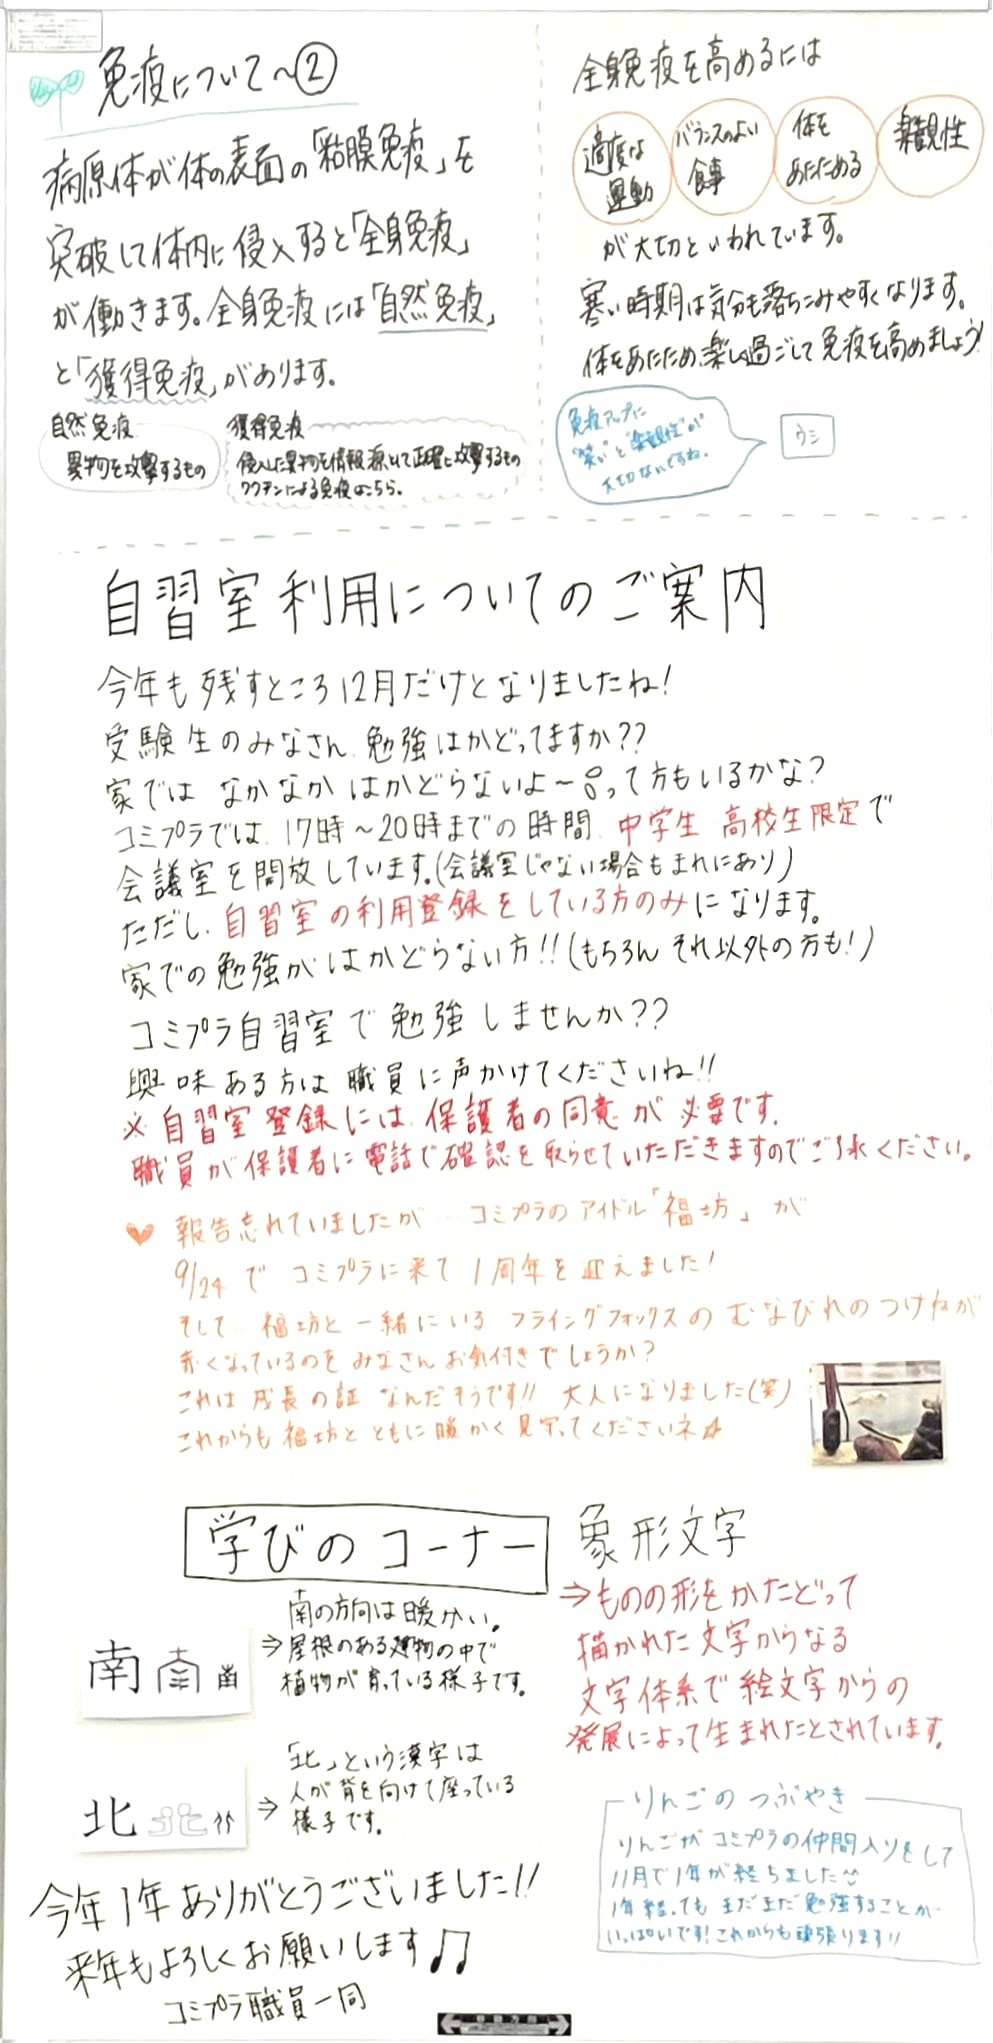 免疫について~②
病原体が体の表面の「粘膜免疫」を
突破して体内に侵入すると「全身免疫」
が働きます。全身免疫には「自然免疫」
と「獲得免疫」があります。
自然免疫
異物を攻撃するもの
獲得免疫
侵入した異物を情報源として正確に攻撃するもの
ワクチンによる免疫はこちら。
全身免疫を高めるには
適度な
運動
バランスのよい
食事
体を
あたためる
楽観性
が大切といわれています。
寒い時期は気分も落ちこみやすくなります。
体をあたため、楽しく過ごして免疫を高めましょう!
免疫アップに
"笑い"と"楽観性"が
大切なんですね。
ウシ
自習室利用についてのご案内
今年も残すところ12月だけとなりましたね!
受験生のみなさん、勉強はかどってますか??
家では なかなか はかどらないよ~って方もいるかな?
コミプラでは、17時~20時までの時間、中学生 高校生限定で
会議室を開放しています。(会議室じゃない場合もまれにあり)
ただし、自習室の利用登録をしている方のみになります。
家での勉強がはかどらない方!!(もちろん それ以外の方も!)
コミプラ自習室で勉強しませんか??
興味ある方は職員に声かけてくださいね!!
※自習室登録には、保護者の同意が必要です。
職員が保護者に電話で確認を取らせていただきますのでご了承ください。
♥ 報告忘れていましたが… コミプラのアイドル「福坊」が
9/24で コミプラに来て1周年を迎えました!
そして… 福坊と一緒にいる フライングフォックスの むなびれのつけねが
赤くなっているのを みなさんお気付きでしょうか?
これは成長の証 なんだそうです!! 大人になりました(笑)
これからも福坊とともに暖かく見守ってくださいネ☆
学びのコーナー
南 南
⇒南の方向は暖かい。
屋根のある建物の中で
植物が育っている様子です。
北
⇒「北」という漢字は
人が背を向けて座っている
様子です。
象形文字
⇒ものの形をかたどって
描かれた文字からなる
文字体系で絵文字からの
発展によって生まれたとされています。
りんごのつぶやき
りんごがコミプラの仲間入りをして
11月で1年が経ちました
1年経っても まだまだ勉強することが
いっぱいです!これからも頑張ります!!
今年1年ありがとうございました!!
来年もよろしくお願いします♫
コミプラ職員一同